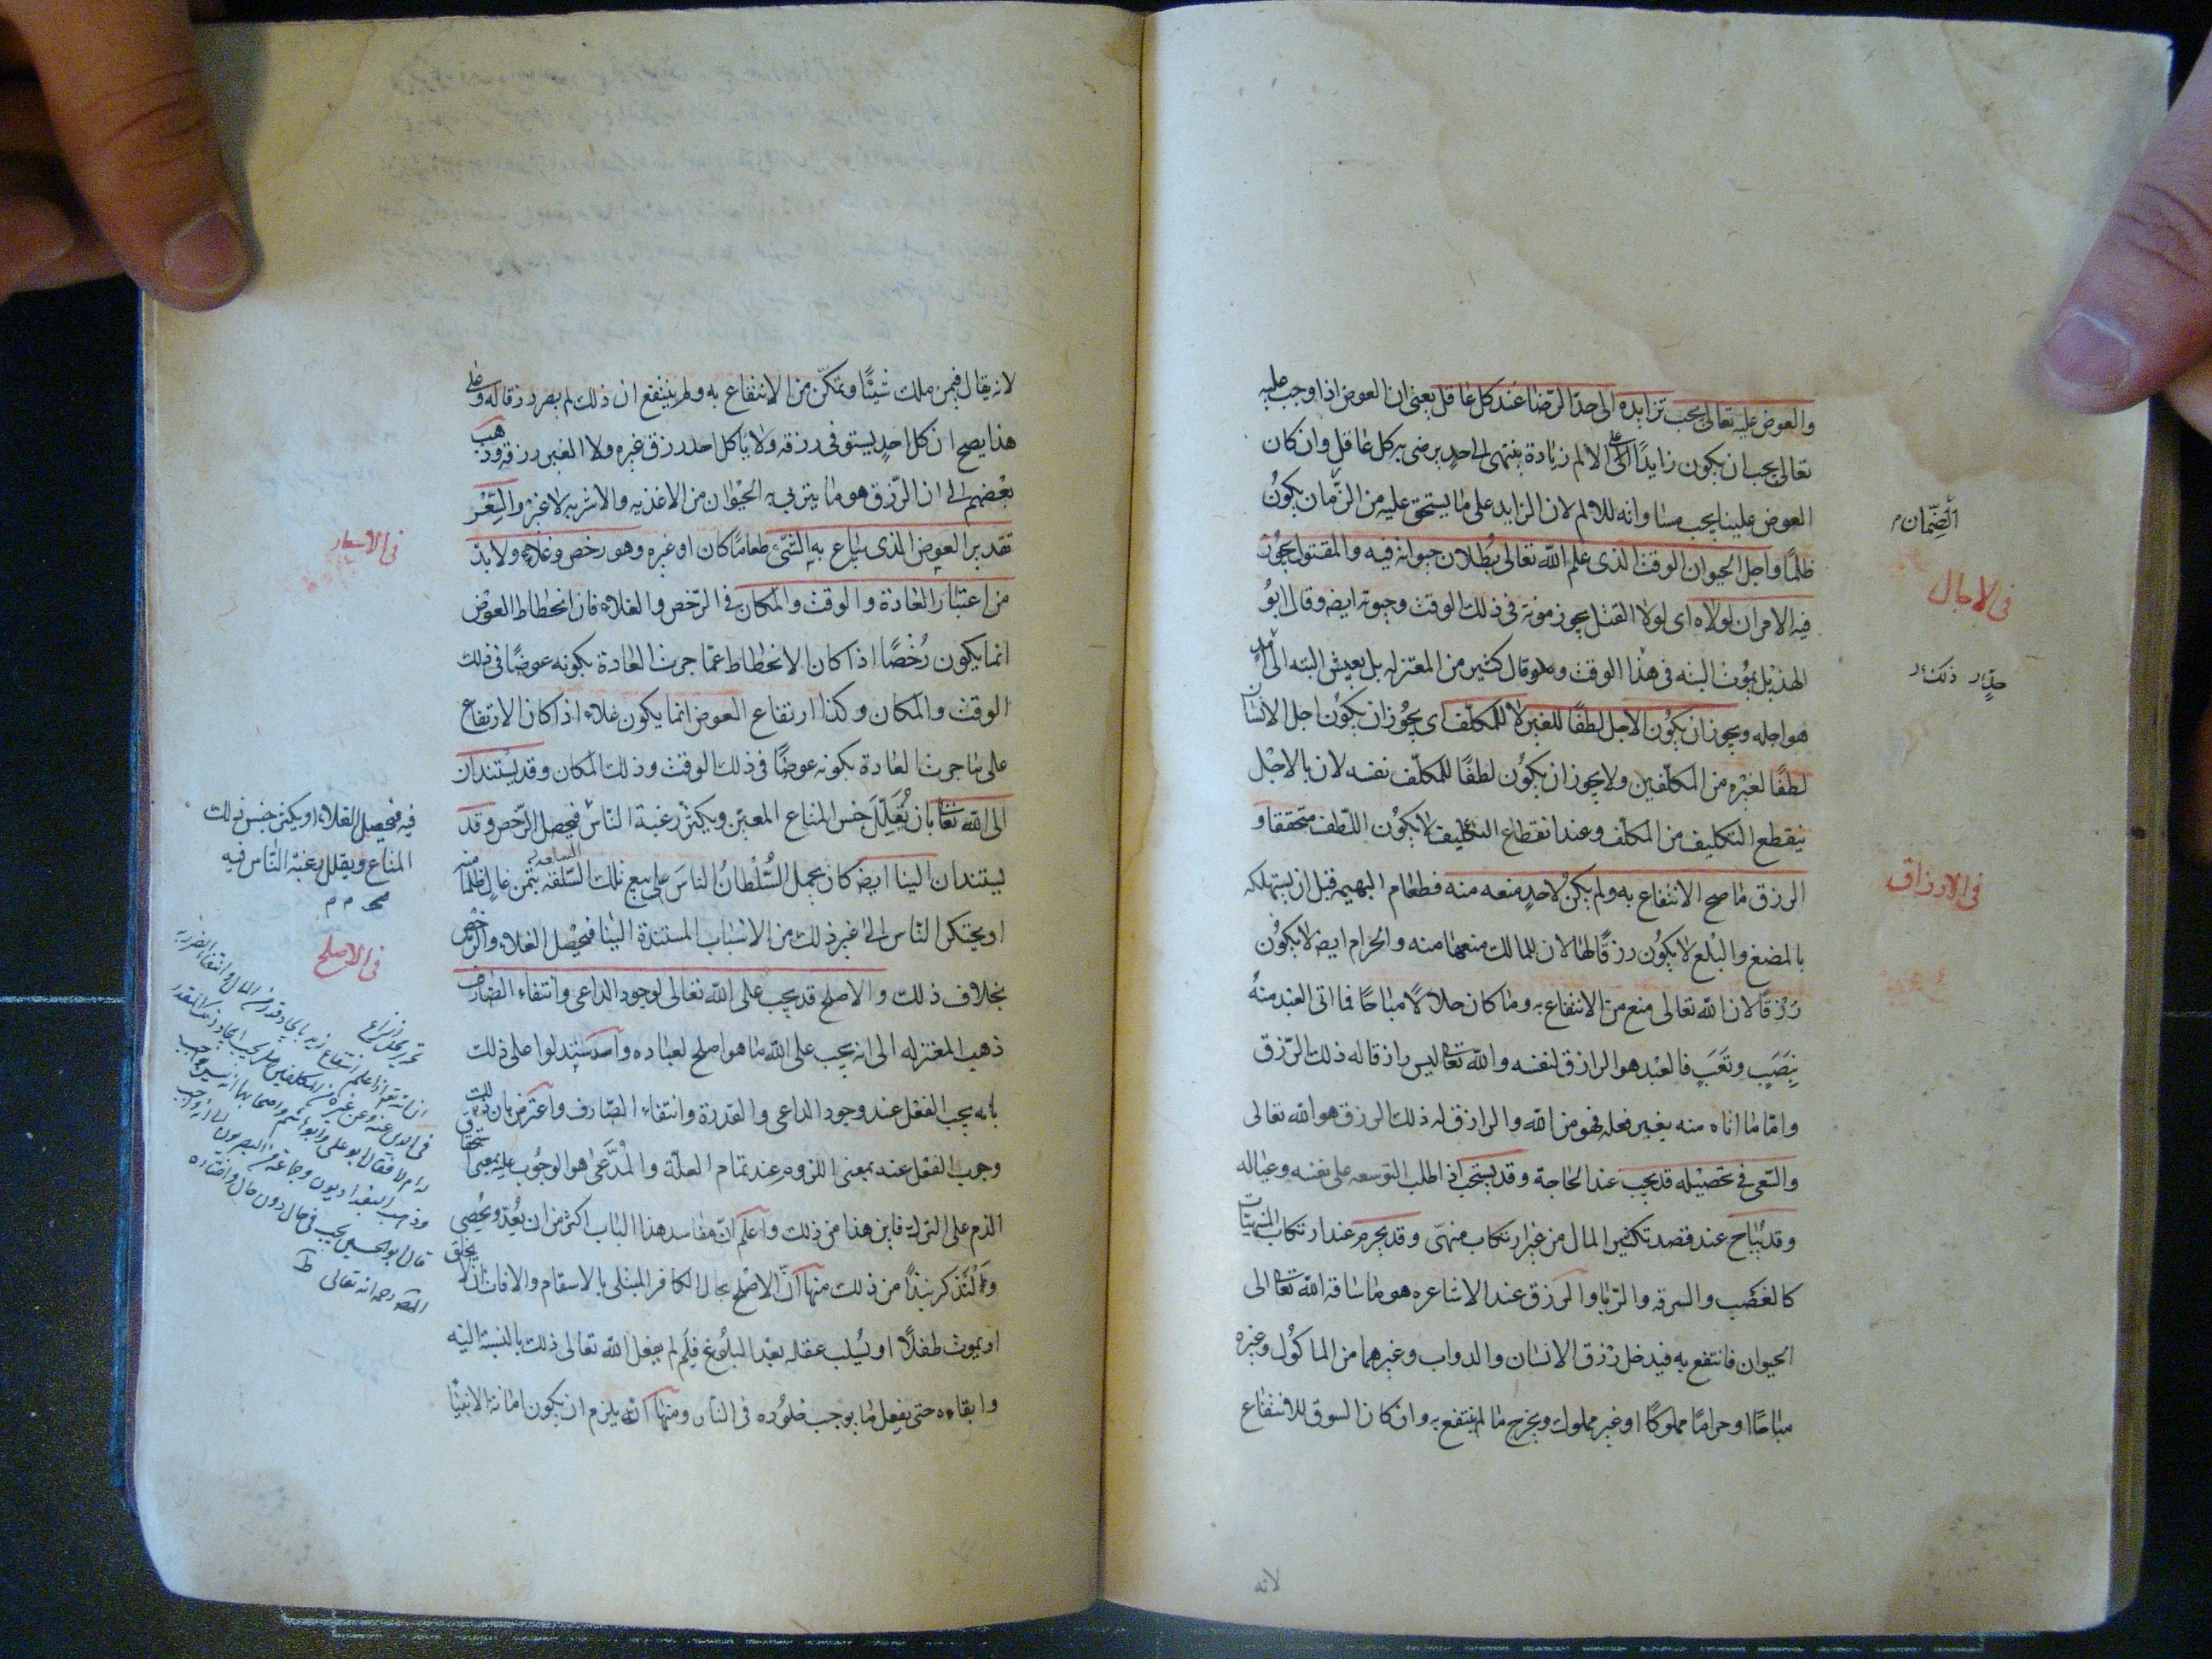 والعوض عليه تعالى يجب تزايده الى حد الرضا عند كل عاقل يعنى ان العوض اذا وجب عليه
تعالى يجب ان يكون زايدا على الالم زيادة ينتهى الى حد يرضى به كل عاقل وان كان
العوض علينا يجب مساواته للالم لان الزايد على ما يستحق عليه من الزمان يكون
الضمان
ظلما واجل الحيوان الوقت الذى علم الله تعالى بطلان حيوته فيه والمقتول يجوز
فى الاجال
فيه الامران لولاه اى لولا القتل يجوز موته فى ذلك الوقت وحيوته ايضه وقال ابو
الهذيل يموت البته فى هذا الوقت وقال كثير من المعتزله بل يعيش البته الى امد
هو اجله ويجوز ان يكون الاجل لطفا للغير لا للمكلف اى يجوز ان يكون اجل الانسان
لطفا لغيره من المكلفين ولا يجوز ان يكون لطفا للمكلف نفسه لان بالاجل
ينقطع التكليف من المكلف وعند انقطاع التكليف لا يكون اللطف متحققا و
الرزق ما صح الانتفاع به ولم يكن لاحد منعه منه فطعام البهيمه قبل ان يستهلكه
فى الارزاق
بالمضغ والبلع لا يكون رزقا لها لان للمالك منعها منه والحرام ايضه لا يكون
رزقا لان الله تعالى منع من الانتفاع به وما كان حلالا مباحا فما اتى العبد منه
بنصب وتعب فالعبد هو الرازق لنفسه والله تعالى ليس رازقا له ذلك الرزق
واما ما اتاه منه بغير فعله فهو من الله والرازق له ذلك الرزق هو الله تعالى
والسعى فى تحصيله قد يجب عند الحاجة وقد يستحب اذا طلب التوسعه على نفسه وعياله
وقد يباح عند قصد تكثير المال من غير ارتكاب منهى وقد يحرم عند ارتكاب المنهيات
كالغصب والسرقه والربا والرزق عند الاشاعره هو ما ساقه الله تعالى الى
الحيوان فانتفع به فيدخل رزق الانسان والدواب وغيرهما من الماكول وغيره
مباحا او حراما مملوكا او غير مملوك ويخرج ما لم ينتفع به وان كان السوق للانتفاع
لانه
لانه يقال فيمن ملك شيئا وتمكن من الانتفاع به ولم ينتفع ان ذلك لم يصر رزقا له وعلى
هذا يصح ان كل احد يستوفى رزقه ولا ياكل احد رزق غيره ولا الغير رزقه وذهب
بعضهم الى ان الرزق هو ما يتربى به الحيوان من الاغذيه والاشربه لا غير والسعر
تقدير العوض الذى يباع به الشئ طعاما كان او غيره وهو رخص وغلاء ولا بد
فى الاسعار
من اعتبار العادة والوقت والمكان فى الرخص والغلاء فان انحطاط العوض
انما يكون رخصا اذا كان الانحطاط عما جرت العادة بكونه عوضا فى ذلك
الوقت والمكان وكذا ارتفاع العوض انما يكون غلاء اذا كان الارتفاع
على ما جرت العادة بكونه عوضا فى ذلك الوقت وذلك المكان وقد يستندان
الى الله تعالى بان يقلل جنس المتاع المعين ويكثر رغبة الناس فيحصل الرخص وقد
فيه فيحصل الغلاء او يكثر جنس ذلك
المتاع ويقلل رغبة الناس فيه
صح
يستندان الينا ايضه كان يحمل السلطان الناس على بيع تلك السلعه بثمن غال ظلما منه
او يحتكر الناس الى غير ذلك من الاسباب المستندة الينا فيحصل الغلاء والرخص
فى الاصلح
بخلاف ذلك والاصلح قد يجب على الله تعالى لوجود الداعى وانتفاء الصارف
ذهب المعتزله الى انه يجب على الله ما هو اصلح لعباده واستدلوا على ذلك
بانه يجب الفعل عند وجود الداعى والقدرة وانتفاء الصارف واعترض بان ذلك
وجوب الفعل عنه بمعنى اللزوم عند تمام العلة والمدعى هو الوجوب عليه بمعنى استحقاق
الذم على الترك فاين هذا من ذلك واعلم ان مفاسد هذا الباب اكثر من ان يعد ويحصى
ولنذكر نبذا من ذلك منها ان الاصلح بحال الكافر المبتلى بالاسقام والافات ان لا يخلق
او يموت طفلا او يسلب عقله بعد البلوغ فلم لم يفعل الله تعالى ذلك بالنسبة اليه
وابقاءه حتى يفعل ما يوجب خلوده فى النار ومنها انه يلزم ان يكون اماتة الانبيا
تحرير محل نزاع
قال ابو الحسين يجب فى حال دون حال واختاره
المصه رحمه الله تعالى